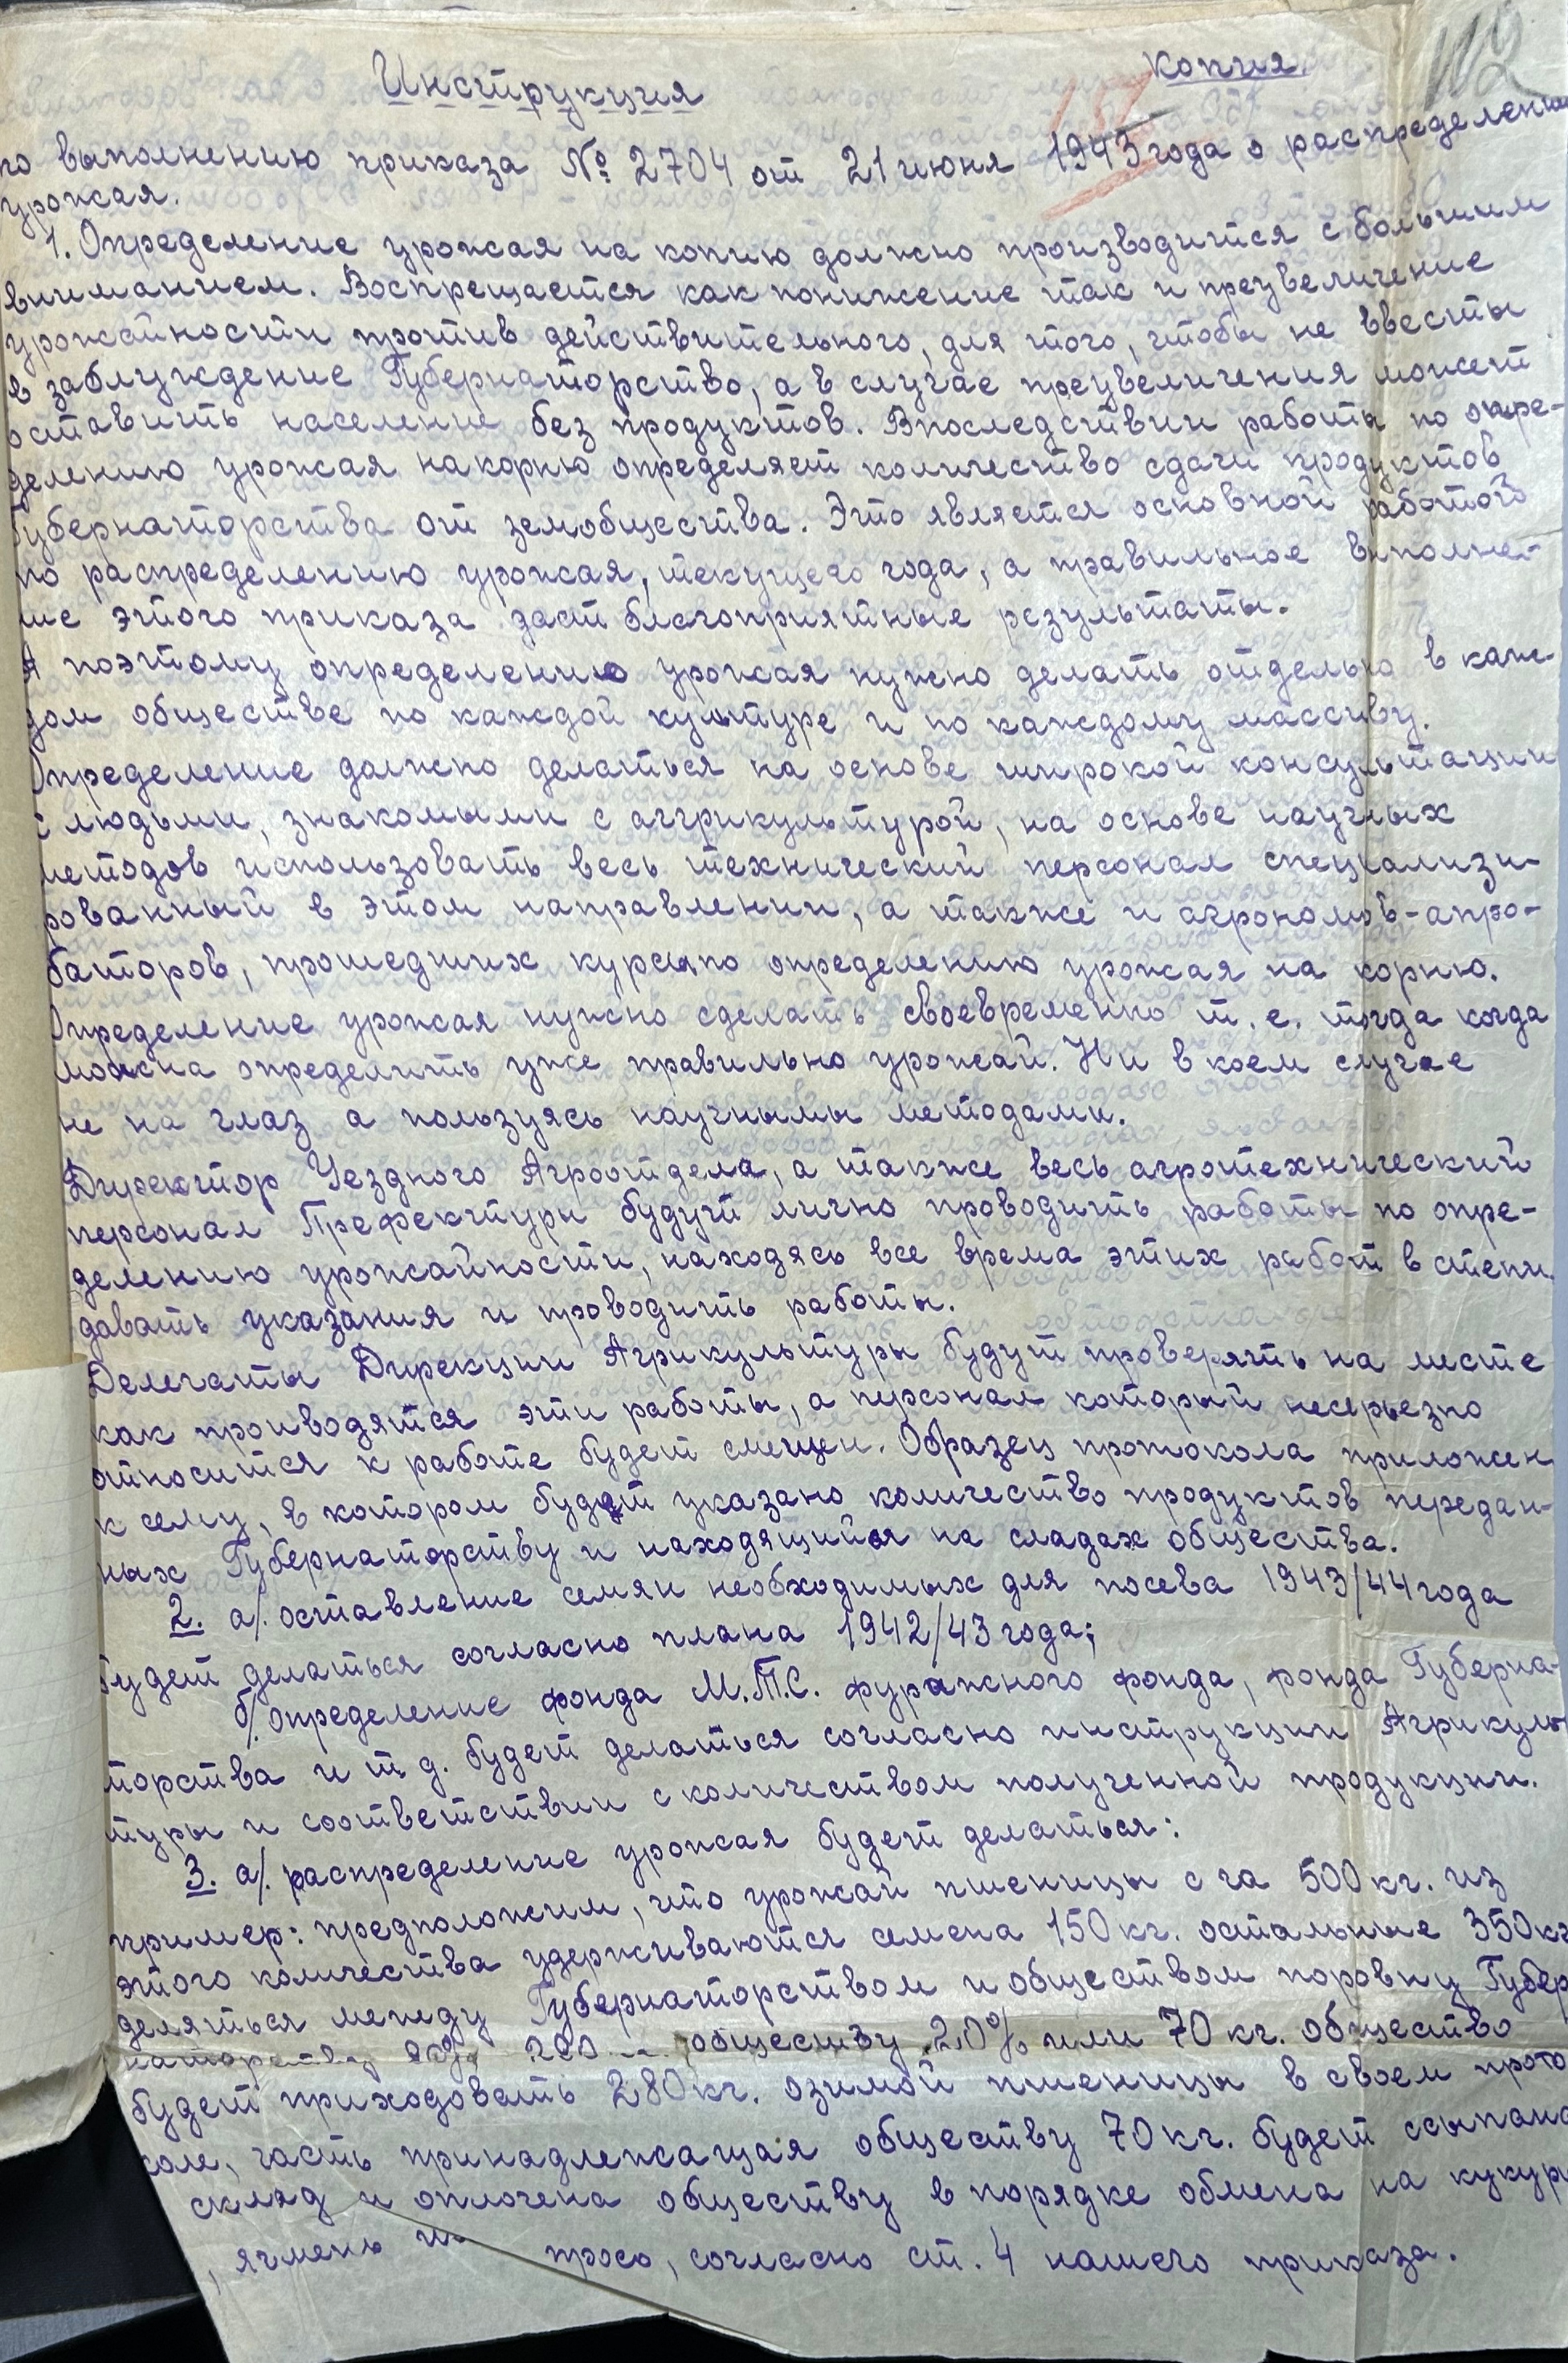 копия.
112
Инструкция
по выполнению приказа № 2704 от 21 июня 1943 года о распределении
урожая.
1. Определение урожая на копию должно производится с большим
вниманием. Воспрещается как понижение так и преувеличение
урожайности против действительного, для того, чтобы не ввесты
в заблуждение Губернаторство, а в случае преувеличения может
оставить население без продуктов. Впоследствии работа по опре-
делению урожая на корню определяет количество сдачи продуктов
Губернаторства от земобщества. Это является основной работой
по распределению урожая, текущего года, а правильное выполне-
ние этого приказа даст благоприятные результаты.
А поэтому определению урожая нужно делать отдельно в каж-
дом обществе по каждой культуре и по каждому массиву.
Определение должно делаться на основе широкой консультации
с людьми, знакомыми с аггрикультурой, на основе научных
методов использовать весь технический персонал специализи-
рованный в этом направлении, а также и агрономов-апро-
баторов, прошедших курсы по определению урожая на корню.
Определение урожая нужно сделать своевременно т.е. тогда когда
можна определить уже правильно урожай. Ни в коем случае
не на глаз а пользуясь научнымы методами.
Директор Уездного Агроотдела, а также весь агротехнический
персонал Префектуры будут лично проводить работы по опре-
делению урожайности, находясь все время этих работ в степи
давать указания и проводить работы.
Делегаты Дирекции Агрикультуры будут проверять на месте
как производятся эти работы, а персонал который несерьезно
относится к работе будет смещен. Образец протокола приложен
к сему, в котором будет указано количество продуктов передан-
ных Губернаторству и находящийся на сладах общества.
2. а/. оставление семян необходимых для посева 1943/44 года
будет делаться согласно плана 1942/43 года;
б/. определение фонда М.Т.С. фуражного фонда, фонда Губерна-
торства и т.д. будет делаться согласно инструкции Агрикуль
туры и соответствии с количеством полученной продукции.
3. а/. распределение урожая будет делаться:
пример: предположим, что урожай пшеницы с га 500 кг. из
этого количества удерживаются семена 150 кг. остальные 350 кг
деляться между Губернаторством и обществом поровну Губер
наторству 80% 280 обществу 20% или 70 кг. общество
будет приходовать 280 кг. озимой пшеницы в своем прото
коле, часть принадлежащая обществу 70 кг. будет ссыпана
склад и оплочена обществу в порядке обмена на кукуру
, ячмень просо, согласно ст. 4 нашего приказа.